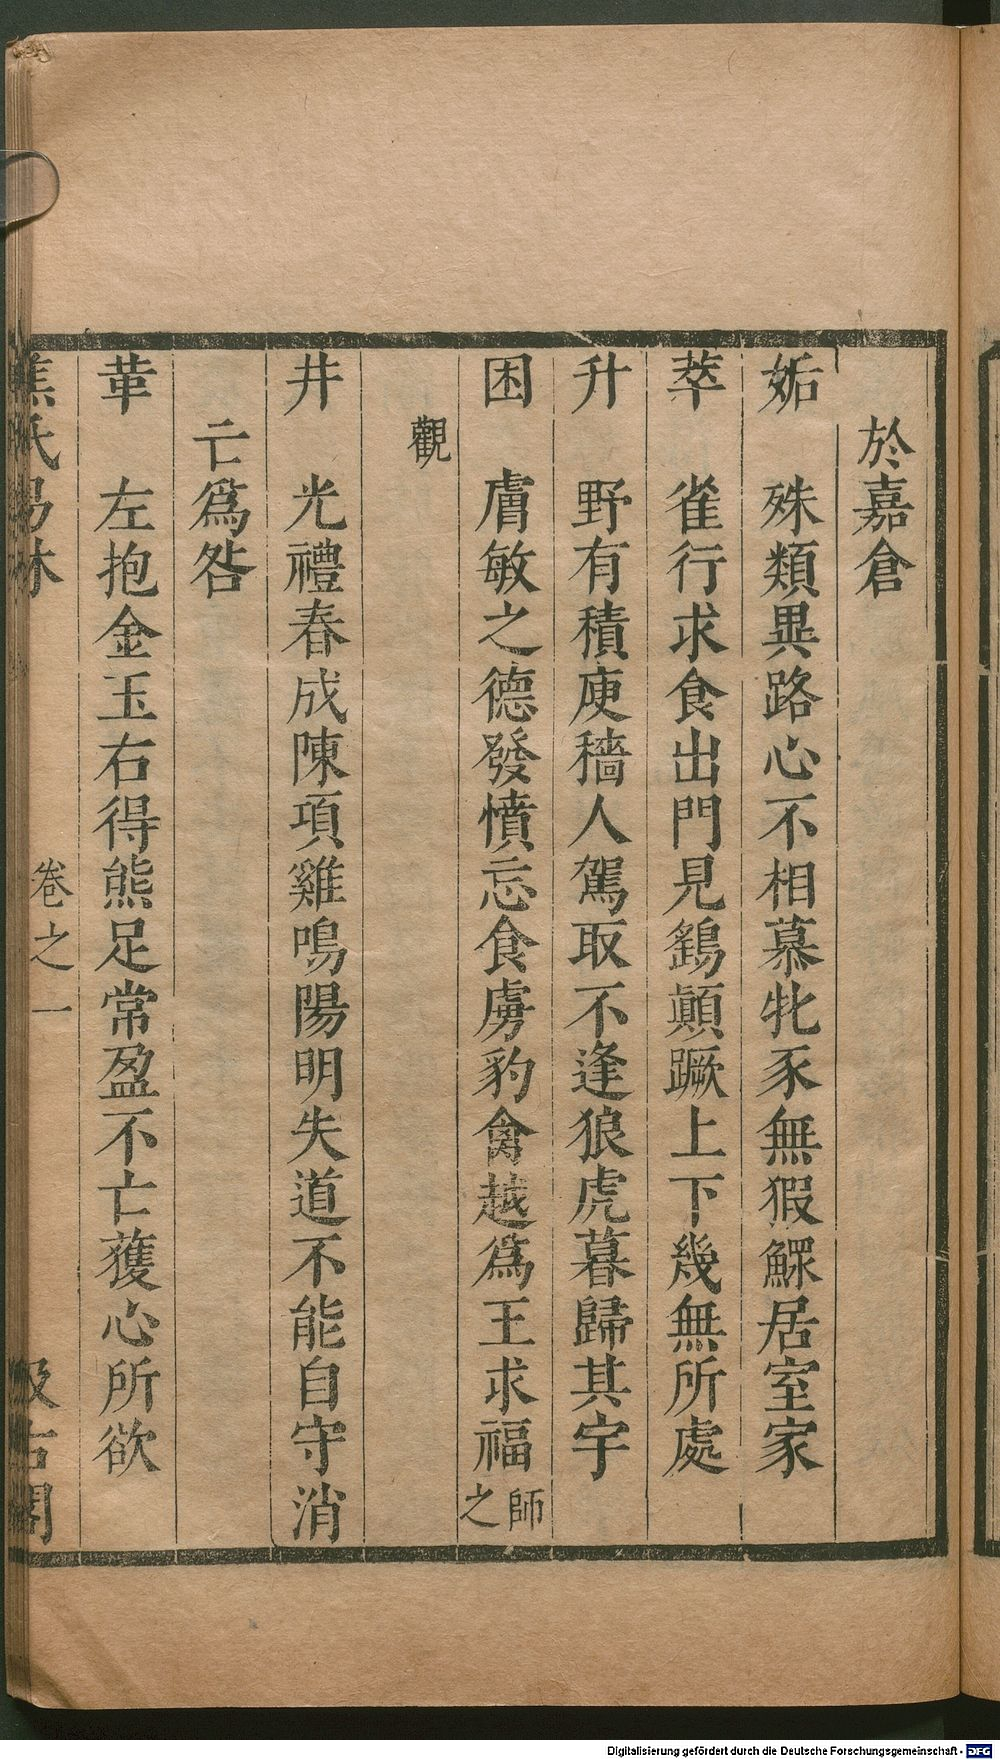 於嘉倉
姤　殊類異路心不相慕牝豕無猳鰥居室家
萃　雀行求食出門見鷂顛蹶上下幾無所處
升　野有積庾穡人駕取不逢狼虎暮歸其宇
困　膚敏之德發憤忘食虜豹禽越爲王求福師之
觀
井　光禮春成陳項雞鳴陽明失道不能自守消
亡爲咎
革　左抱金玉右得熊足常盈不亡獲心所欲
焦氏易林　卷之一　汲古閣
Digitalisierung gefördert durch die Deutsche Forschungsgemeinschaft - DFG